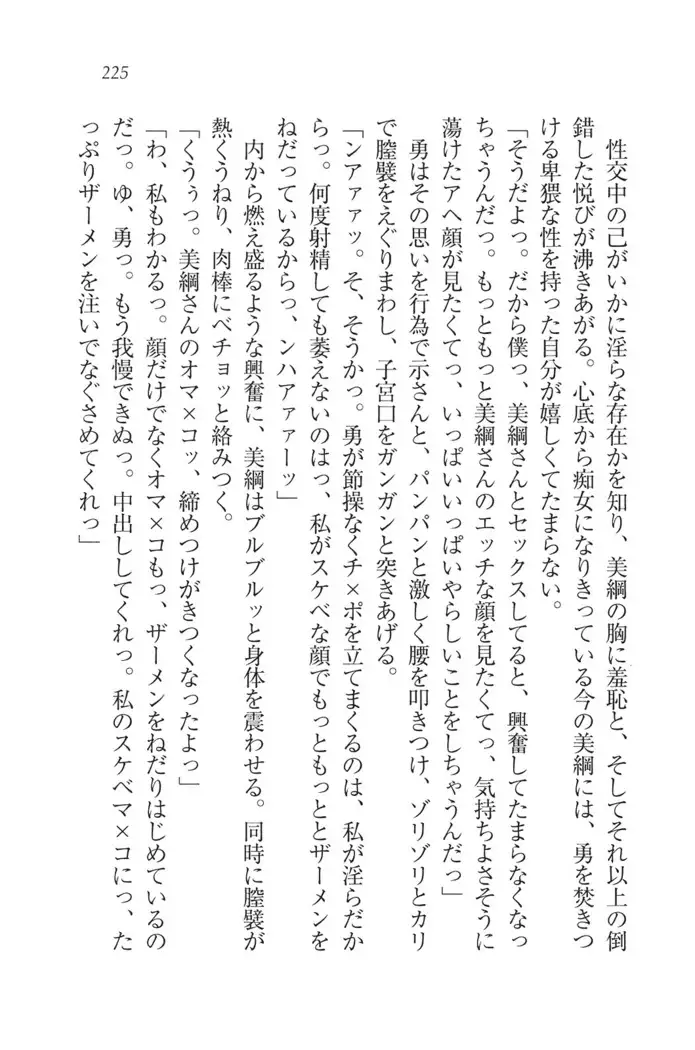 225
性交中の己がいかに淫らな存在かを知り、美綱の胸に羞恥と、そしてそれ以上の倒
錯した悦びが沸きあがる。心底から痴女になりきっている今の美綱には、勇を焚きつ
ける卑猥な性を持った自分が嬉しくてたまらない。
「そうだよっ。だから僕っ、美綱さんとセックスしてると、興奮してたまらなくなっ
ちゃうんだっ。もっともっと美綱さんのエッチな顔を見たくてっ、気持ちよさそうに
蕩けたアヘ顔が見たくてっ、いっぱいいっぱいやらしいことをしちゃうんだっ」
勇はその思いを行為で示さんと、パンパンと激しく腰を叩きつけ、ゾリゾリとカリ
で膣襞をえぐりまわし、子宮口をガンガンと突きあげる。
「ンアァァッ。そ、そうかっ。勇が節操なくチ×ポを立てまくるのは、私が淫らだか
らっ。何度射精しても萎えないのはっ、私がスケベな顔でもっともっととザーメンを
ねだっているからっ、ンハアァァーッ」
内から燃え盛るような興奮に、美綱はブルブルッと身体を震わせる。同時に膣襞が
熱くうねり、肉棒にベチョッと絡みつく。
「くうぅっ。美綱さんのオマ×コッ、締めつけがきつくなったよっ」
「わ、私もわかるっ。顔だけでなくオマ×コもっ、ザーメンをねだりはじめているの
だっ。ゆ、勇っ。もう我慢できぬっ。中出ししてくれっ。私のスケベマ×コにっ、た
っぷりザーメンを注いでなぐさめてくれっ」